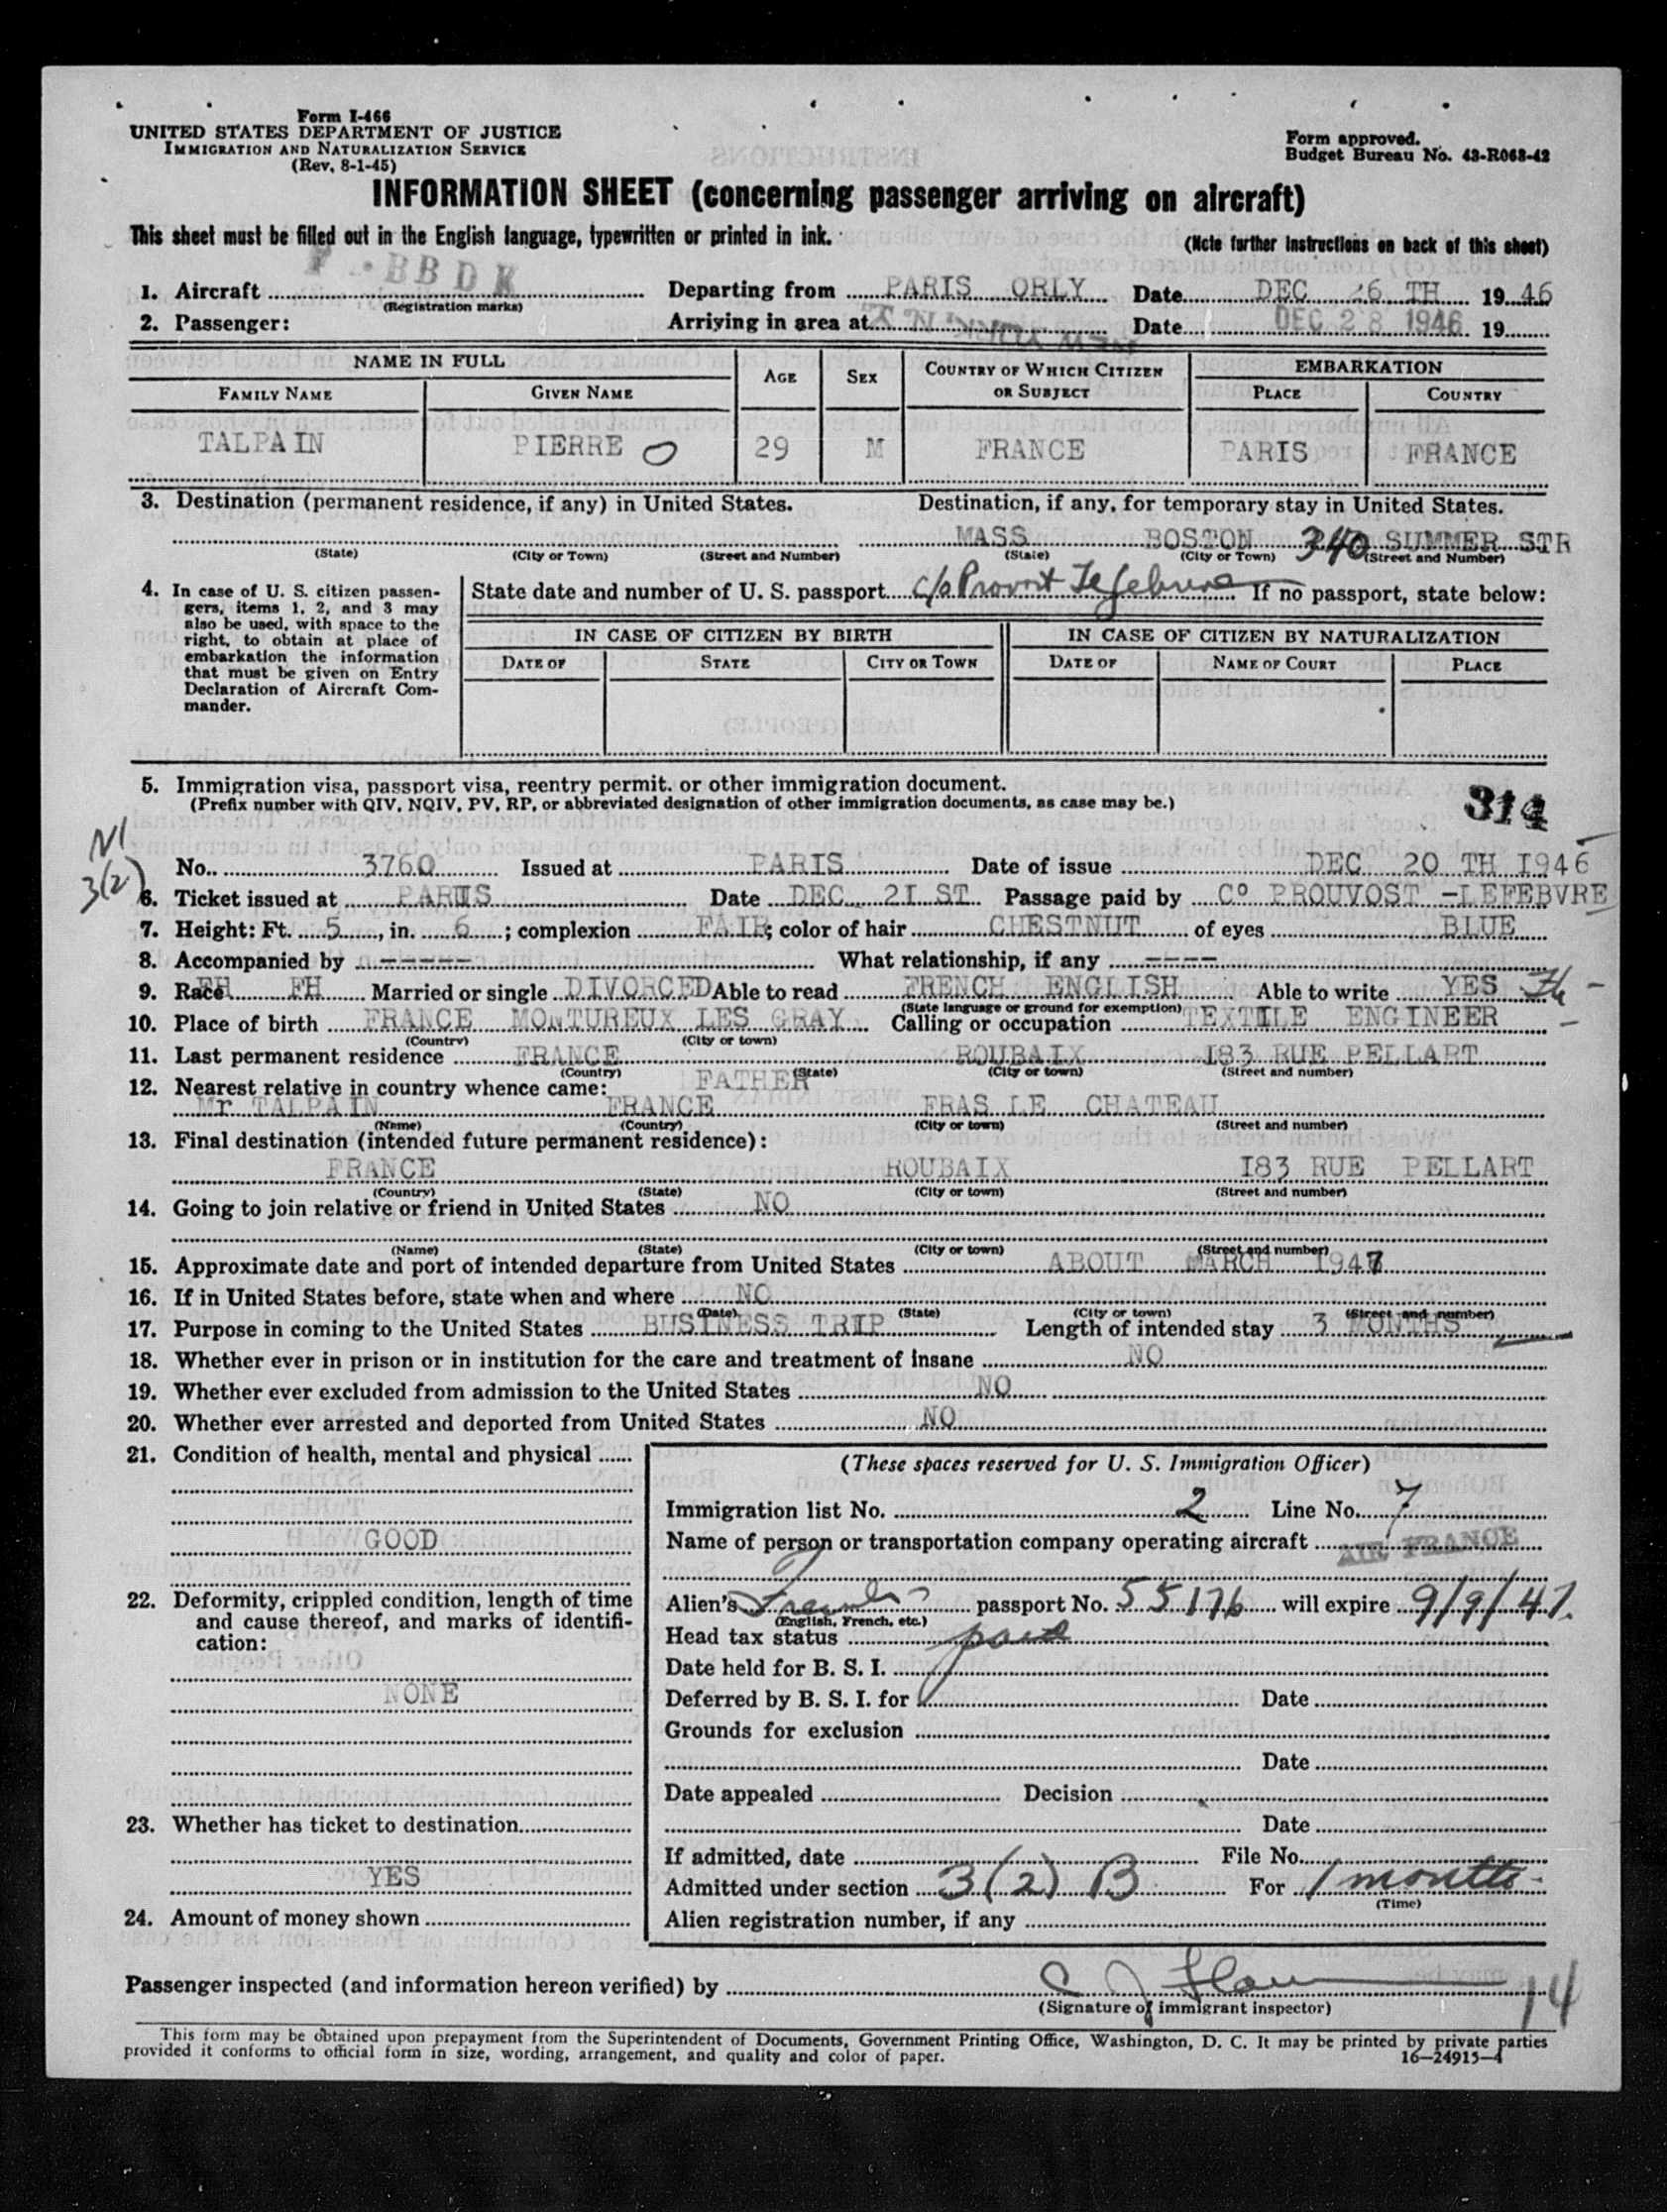 Form I-466
UNITED STATES DEPARTMENT OF JUSTICE
IMMIGRATION AND NATURALIZATION SERVICE
(Rev. 8-1-45)
Form approved.
Budget Bureau No. 43-R063-42
INFORMATION SHEET (concerning passenger arriving on aircraft)
This sheet must be filled out in the English language, typewritten or printed in ink.
(Note further instructions on back of this sheet)
1. Aircraft F-BBDK Departing from PARIS ORLY Date DEC 26 TH 1946
(Registration marks)
2. Passenger: Arriving in area at Date DEC 28 1946 19
NAME IN FULL AGE SEX COUNTRY OF WHICH CITIZEN OR SUBJECT EMBARKATION
FAMILY NAME GIVEN NAME PLACE COUNTRY
TALPAIN PIERRE O 29 M FRANCE PARIS FRANCE
3. Destination (permanent residence, if any) in United States. Destination, if any, for temporary stay in United States.
MASS BOSTON 340 SUMMER STR
(State) (City or Town) (Street and Number) (State) (City or Town) (Street and Number)
4. In case of U. S. citizen passengers, items 1, 2, and 3 may also be used, with space to the right, to obtain at place of embarkation the information that must be given on Entry Declaration of Aircraft Commander.
State date and number of U. S. passport c/o Provost Lefebvre If no passport, state below:
IN CASE OF CITIZEN BY BIRTH IN CASE OF CITIZEN BY NATURALIZATION
DATE OF STATE CITY OR TOWN DATE OF NAME OF COURT PLACE
5. Immigration visa, passport visa, reentry permit. or other immigration document.
(Prefix number with QIV, NQIV, PV, RP, or abbreviated designation of other immigration documents, as case may be.)
314
NI
3(2)
No. 3760 Issued at PARIS Date of issue DEC 20 TH 1946
6. Ticket issued at PARIS Date DEC 21 ST Passage paid by Co PROUVOST -LEFEBVRE
7. Height: Ft. 5, in. 6; complexion FAIR; color of hair CHESTNUT of eyes BLUE
8. Accompanied by ----- What relationship, if any ----
9. Race FH Married or single DIVORCED Able to read FRENCH ENGLISH Able to write YES
(State language or ground for exemption)
10. Place of birth FRANCE MONTUREUX LES GRAY Calling or occupation TEXTILE ENGINEER
(Country) (City or town)
11. Last permanent residence FRANCE ROUBAIX 183 RUE PELLART
(Country) (State) (City or town) (Street and number)
12. Nearest relative in country whence came: FATHER
Mr TALPAIN FRANCE FRAS LE CHATEAU
(Name) (Country) (City or town) (Street and number)
13. Final destination (intended future permanent residence):
FRANCE ROUBAIX 183 RUE PELLART
(Country) (State) (City or town) (Street and number)
14. Going to join relative or friend in United States NO
(Name) (State) (City or town) (Street and number)
15. Approximate date and port of intended departure from United States ABOUT MARCH 1947
16. If in United States before, state when and where NO
(Date) (State) (City or town) (Street and number)
17. Purpose in coming to the United States BUSINESS TRIP Length of intended stay 3 MONTHS
18. Whether ever in prison or in institution for the care and treatment of insane NO
19. Whether ever excluded from admission to the United States NO
20. Whether ever arrested and deported from United States NO
21. Condition of health, mental and physical
GOOD
22. Deformity, crippled condition, length of time and cause thereof, and marks of identification:
NONE
23. Whether has ticket to destination
YES
24. Amount of money shown
(These spaces reserved for U. S. Immigration Officer)
Immigration list No. 2 Line No. 7
Name of person or transportation company operating aircraft AIR FRANCE
Alien's French passport No. 55176 will expire 9/9/47.
(English, French, etc.)
Head tax status paid
Date held for B. S. I.
Deferred by B. S. I. for Date
Grounds for exclusion
Date
Date appealed Decision
Date
If admitted, date File No.
Admitted under section 3(2) B For 1 months
(Time)
Alien registration number, if any
Passenger inspected (and information hereon verified) by
(Signature of immigrant inspector)
14
This form may be obtained upon prepayment from the Superintendent of Documents, Government Printing Office, Washington, D. C. It may be printed by private parties
provided it conforms to official form in size, wording, arrangement, and quality and color of paper.
16—24915-4